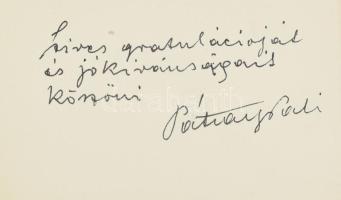 Szives gratulációját
és jókivánságait
köszöni
Pátzay Pali